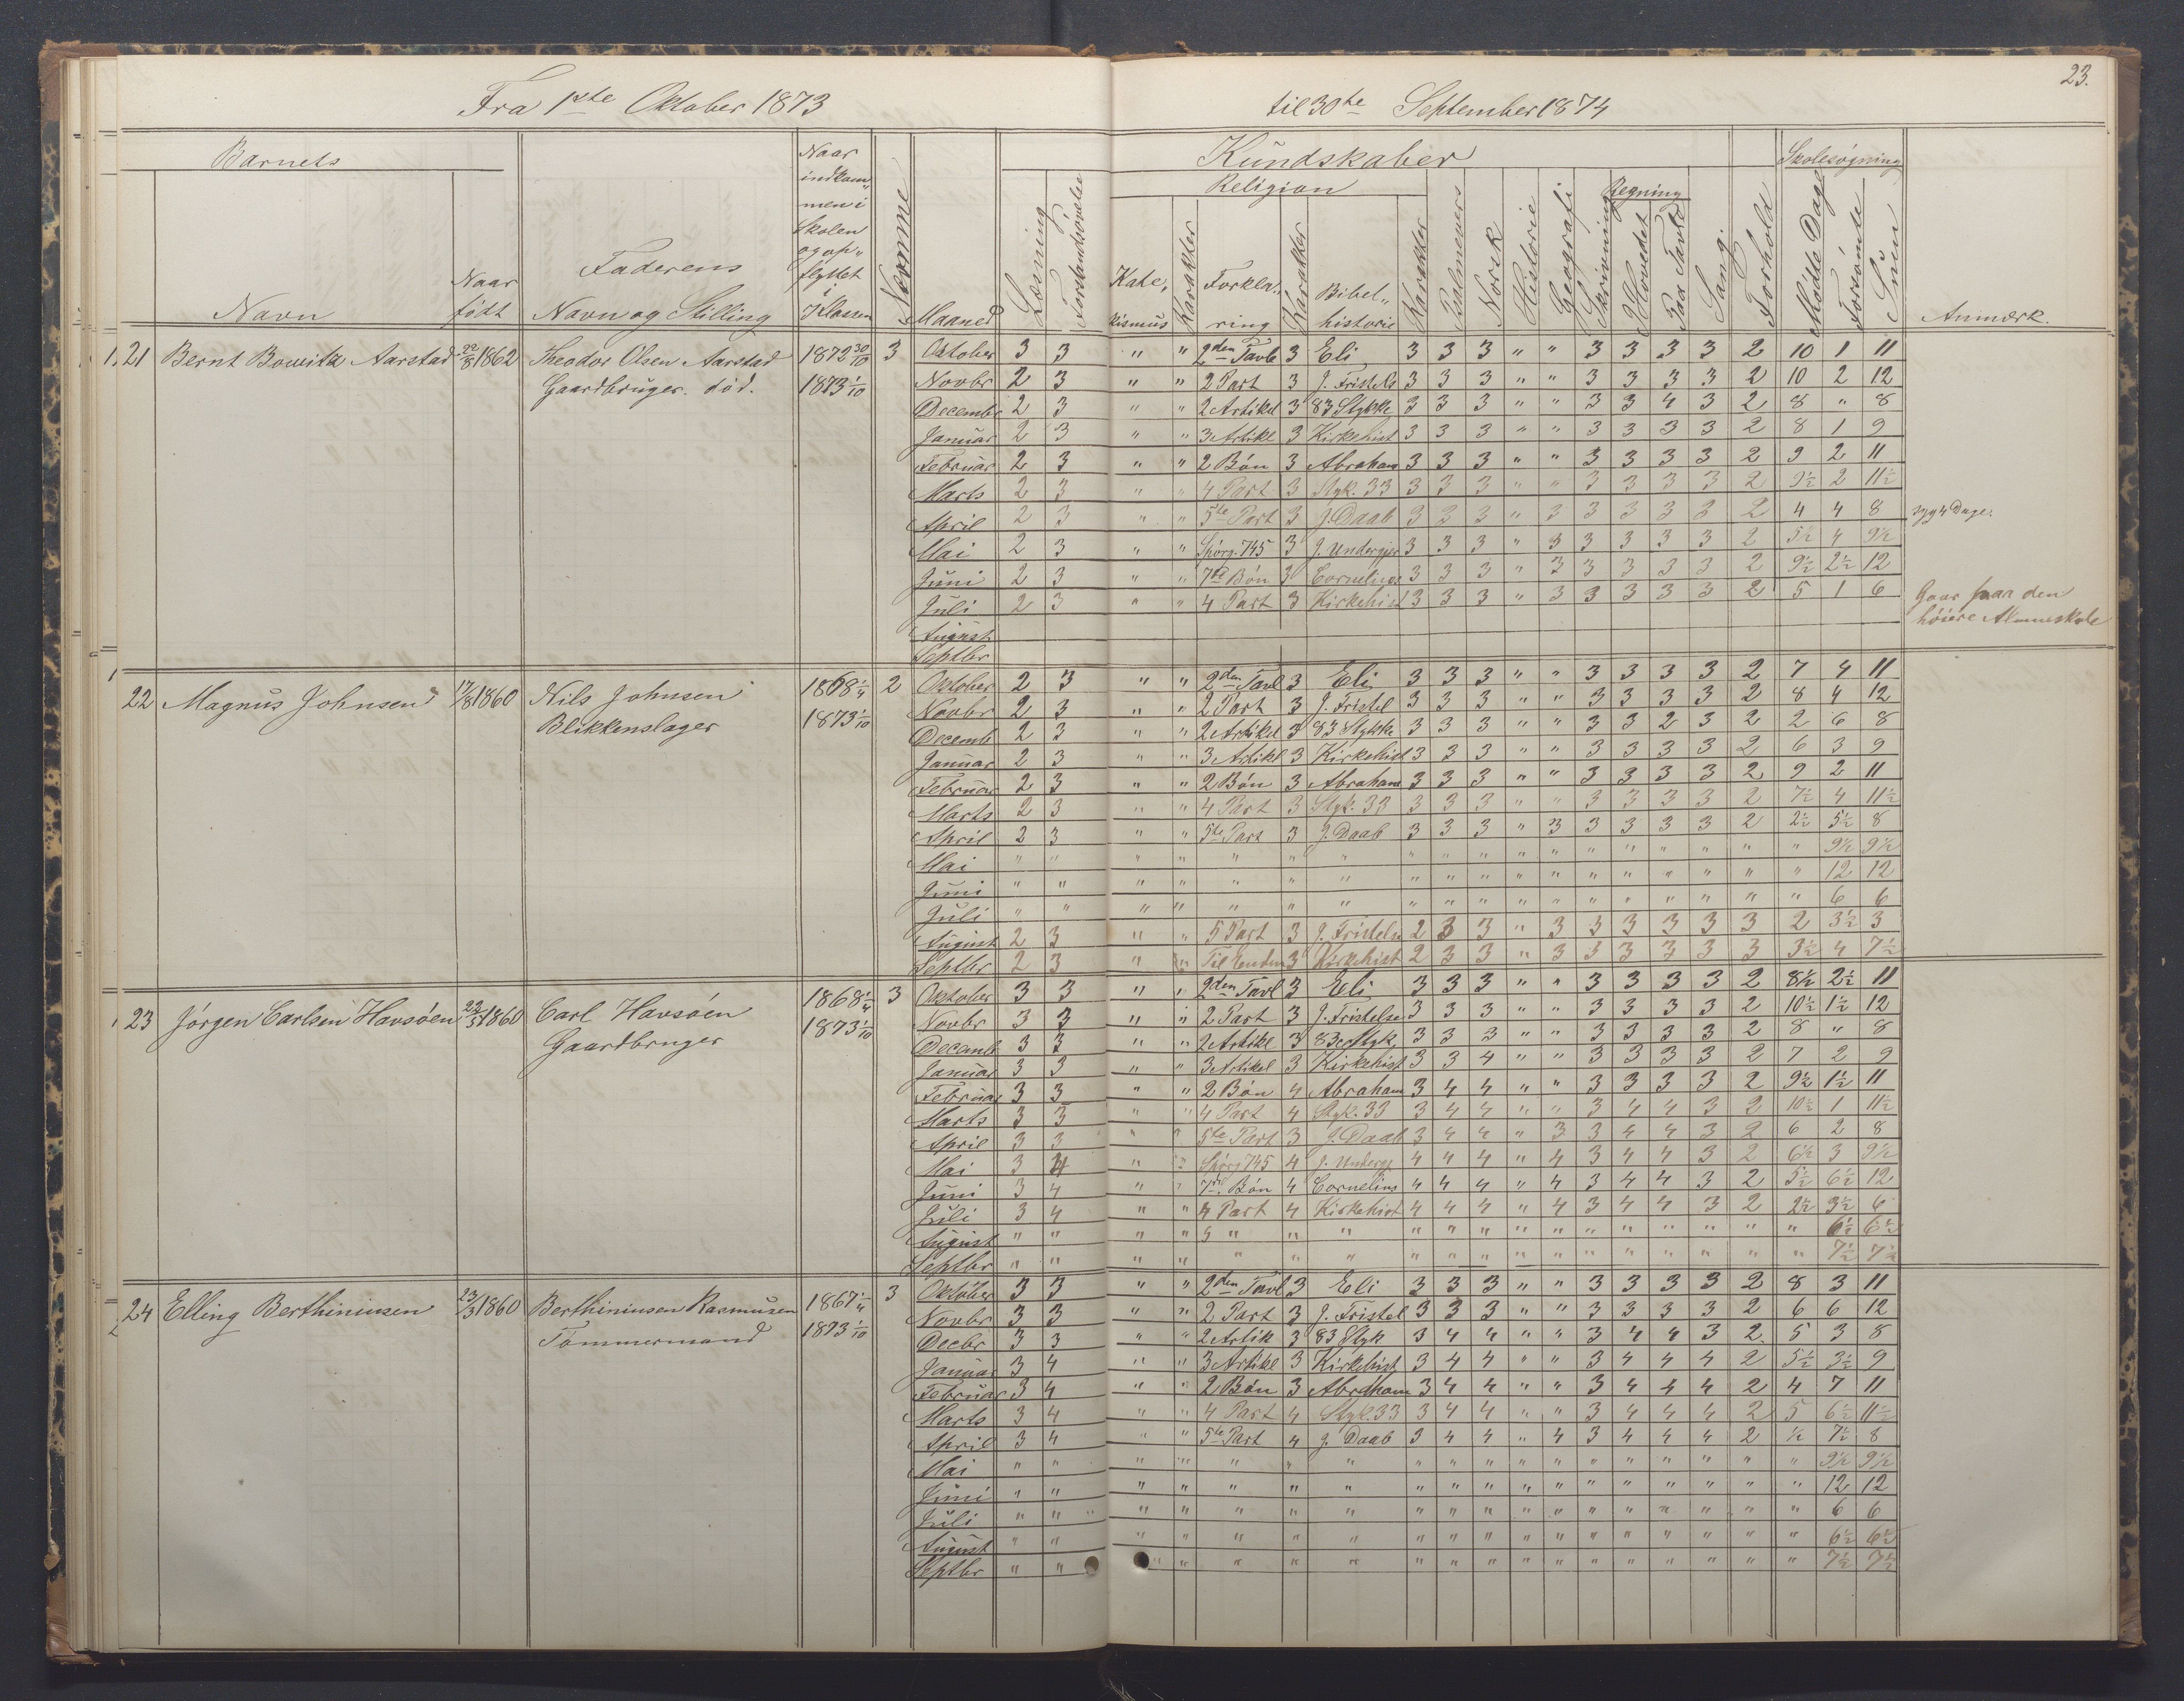 23.
Fra 1ste Oktober 1873 til 30te September 1874
Barnets Kundskaber Skolesøgning
Religion Regning
Navn Naar født Faderens Navn og Stilling Naar indkommen i Skolen og opflyttet i Klassen Nørmne Maaned Læsning Forstandsøvelse Katekismus Karakter Forklaring Karakter Bibelhistorie Karakter Psalmevers Norsk Historie Geografi Skrivning I Hovedet Paa Tavle Sang. Forhold Mødte Dage Forsømte Sum Anmærk.
1. 21 Bernt Aarstad 22/8 1862 Theodor Olsen Aarstad 1872 30/10 3 Oktober 3 3 " " 2den Tavle 3 Eli 3 3 3 " " 3 3 3 3 2 10 1 11
Gaardbruger. død. 1873 1/10 Novbr 2 3 " " 2 Part 3 J. Fristels 3 3 3 " " 3 3 3 3 2 10 2 12
Decembr 2 3 " " 2 Artikel 3 83 Stykke 3 3 3 " " 3 3 4 3 2 8 " 8
Januar 2 3 " " 3 Artikl 3 Kirkehist 3 3 3 " " 3 3 3 3 2 8 1 9
Februar 2 3 " " 2 Bøn 3 Abraham 3 3 3 " " 3 3 3 3 2 9 2 11
Marts 2 3 " " 4 Part 3 Styk. 33 3 3 3 " " 3 3 3 3 2 9½ 2 11½
April 2 3 " " 5te Part 3 J. Daab 3 3 3 " 3 3 3 3 3 2 4 4 8 syg 4 Dage.
Mai 2 3 " " Spørg. 745 3 J. Undergjer 3 3 3 " 3 3 3 3 3 2 5½ 4 9½
Juni 2 3 " " 7de Bøn 3 Cornelius 3 3 3 " 3 3 3 3 3 2 9½ 2½ 12
Juli 2 3 " " 4 Part 3 Kirkehist 3 3 3 " 3 3 3 3 3 2 5 1 6 Gaar paa den
August høiere Almueskole
Septbr
22 Magnus Johnsen 17/8 1860 Nils Johnsen 1868 1/4 2 Oktober 2 3 " " 2den Tavl 3 Eli 3 3 3 " " 3 3 3 3 2 7 4 11
Blikkenslager 1873 1/10 Novbr 2 3 " " 2 Part 3 J. Fristel 3 3 3 " " 3 3 3 3 2 8 4 12
Decemb 2 3 " " 2 Artikel 3 83 Stykke 3 3 3 " " 3 3 2 3 2 2 6 8
Januar 2 3 " " 3 Artikl 3 Kirkehist 3 3 3 " " 3 3 3 3 2 6 3 9
Februar 2 3 " " 2 Bøn 3 Abraham 3 3 3 " " 3 3 3 3 2 9 2 11
Marts 2 3 " " 4 Part 3 Styk. 33 3 3 3 " " 3 3 3 3 2 7½ 4 11½
April 2 3 " " 5te Part 3 J. Daab 3 3 3 " 3 3 3 3 3 2 2½ 5½ 8
Mai " " " " " " " " " " " " " " " " " " 9½ 9½
Juni " " " " " " " " " " " " " " " " " " 12 12
Juli " " " " " " " " " " " " " " " " " " 6 6
August 2 3 " " 5 Part 3 J. Fristelse 2 3 3 " 3 3 3 3 3 3 2 3½ 3
Septbr 2 3 " " Til Enden 3 Kirkehist 2 3 3 " 3 3 3 3 3 3 3½ 4 7½
23 Jørgen Carlsen Havsøen 22/5 1860 Carl Havsøen 1868 1/4 3 Oktober 3 3 " " 2den Tavl 3 Eli 3 3 3 " " 3 3 3 3 2 8½ 2½ 11
Gaardbruger 1873 1/10 Novbr 3 3 " " 2 Part 3 J. Fristelse 3 3 3 " " 3 3 3 3 2 10½ 1½ 12
Decemb 3 3 " " 2 Artikl 3 83de Styk 3 3 3 " " 3 3 3 3 2 8 " 8
Januar 3 3 " " 3 Artikel 3 Kirkehist 3 3 4 " " 3 3 3 3 2 7 2 9
Februar 3 3 " " 2 Bøn 4 Abraham 3 4 4 " " 3 3 3 3 2 9½ 1½ 11
Marts 3 3 " " 4 Part 4 Styk. 33 3 4 4 " " 3 4 4 3 2 10½ 1 11½
April 3 3 " " 5te Part 3 J. Daab 3 4 4 " 3 3 4 4 3 2 6 2 8
Mai 3 4 " " Spørg 745 4 J. Undergj 4 4 4 " 4 3 4 4 3 2 6½ 3 9½
Juni 3 4 " " 7de Bøn 4 Cornelius 4 4 4 " 4 3 4 4 3 2 5½ 6½ 12
Juli 3 4 " " 4 Part 4 Kirkehist 4 4 4 " 4 3 4 4 3 2 2½ 3½ 6
August " " " " " " " " " " " " " " " " " " 6½ 6½
Septbr " " " " " " " " " " " " " " " " " " 7½ 7½
24 Elling Berthiniusen 23/3 1860 Berthiniusen Rasmusen 1867 1/4 3 Oktober 3 3 " " 2den Tavl 3 Eli 3 3 3 " " 3 3 3 3 2 8 3 11
Tømmermand 1873 1/10 Novbr 3 3 " " 2 Part 3 J. Fristel 3 3 3 " " 3 3 3 3 2 6 6 12
Decbr 3 3 " " 2 Artik 3 83 Styk 3 4 4 " " 3 4 4 3 2 5 3 8
Januar 3 4 " " 3 Artikl 3 Kirkehist 3 4 4 " " 3 4 4 4 2 5½ 3½ 9
Februar 3 4 " " 2 Bøn 3 Abraham 3 4 4 " " 3 4 4 4 2 4 7 11
Marts 3 4 " " 4 Part 4 Styk. 33 3 4 4 " " 3 4 4 4 2 5 6½ 11½
April 3 4 " " 5te Part 4 J. Daab 3 4 4 " 4 3 4 4 4 2 ½ 7½ 8
Mai " " " " " " " " " " " " " " " " " " 9½ 9½
Juni " " " " " " " " " " " " " " " " " " 12 12
Juli " " " " " " " " " " " " " " " " " " 6 6
August " " " " " " " " " " " " " " " " " " 6½ 6½
Septbr " " " " " " " " " " " " " " " " " " 7½ 7½